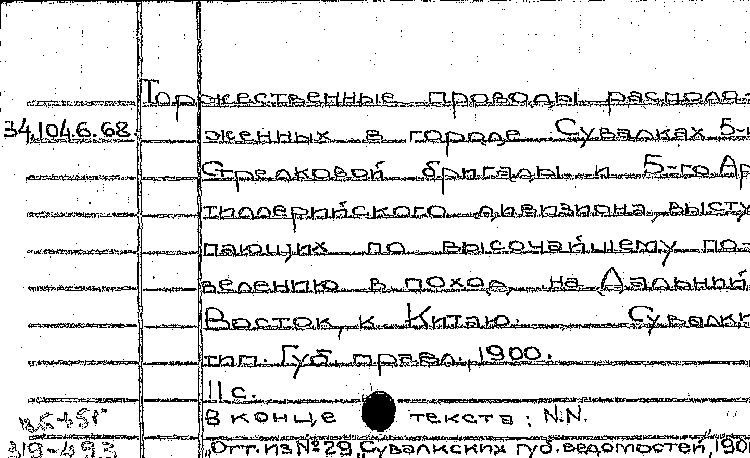 Торжественные проводы располо-
34.104.6.68. женных в городе Сувалках 5-й
Стрелковой бригады и 5-го Ар
тиллерийского дивизиона, высту
пающих по высочайшему по
велению в поход на Дальний
Восток, к Китаю. Сувалки
тип. Губ. правл., 1900.
11 с.
В конце текста: N.N.
319-493 "Отт. из №29 "Сувалкских губ. ведомостей", 190